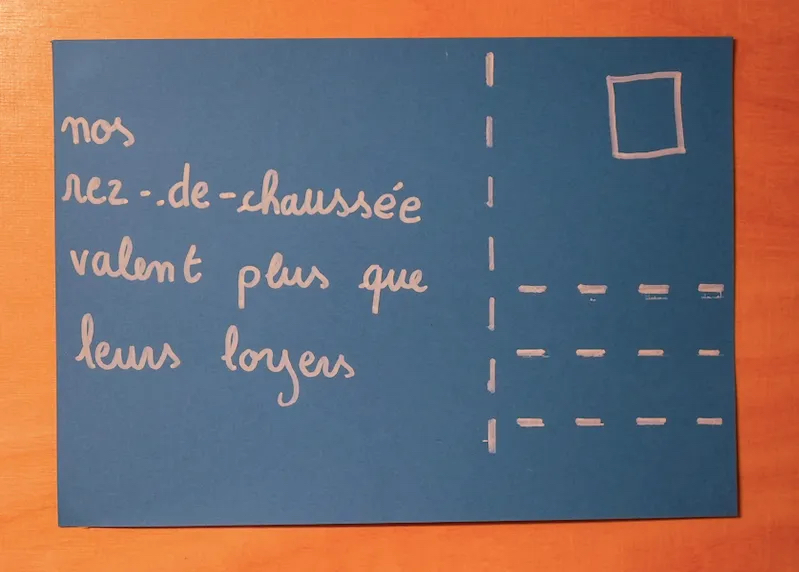 nos
rez-de-chaussée
valent plus que
leurs loyers